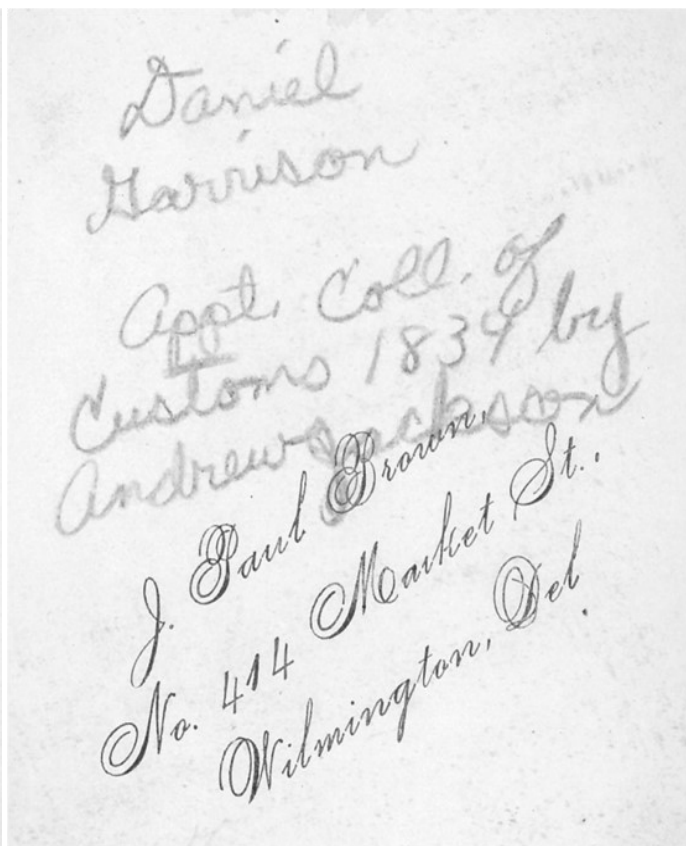 Daniel
Garrison
Appt. Coll. of
Customs 1834 by
Andrew Jackson
J. Paul Brown,
No. 414 Market St.,
Wilmington, Del.